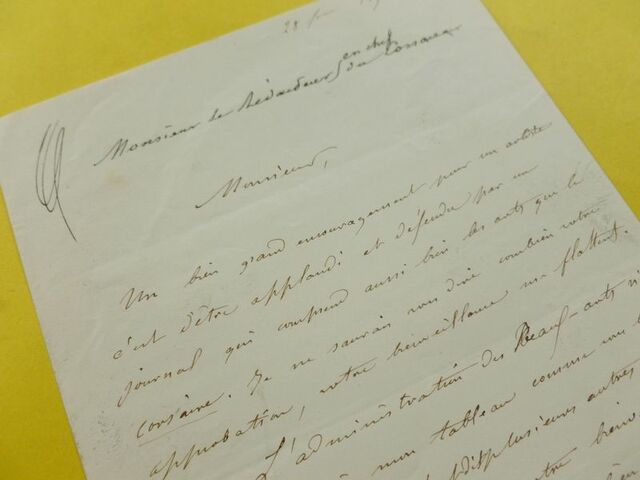 28
Monsieur le Rédacteur en chef du Corsaire
Monsieur,
Un bien grand encouragement pour un artiste
c'est d'être applaudi et défendu par un
journal qui comprend aussi bien les arts que le
corsaire. Je ne saurais vous dire combien votre
approbation, votre bienveillance me flattent.
L'administration des Beaux-arts
mon tableau comme
plusieurs autres